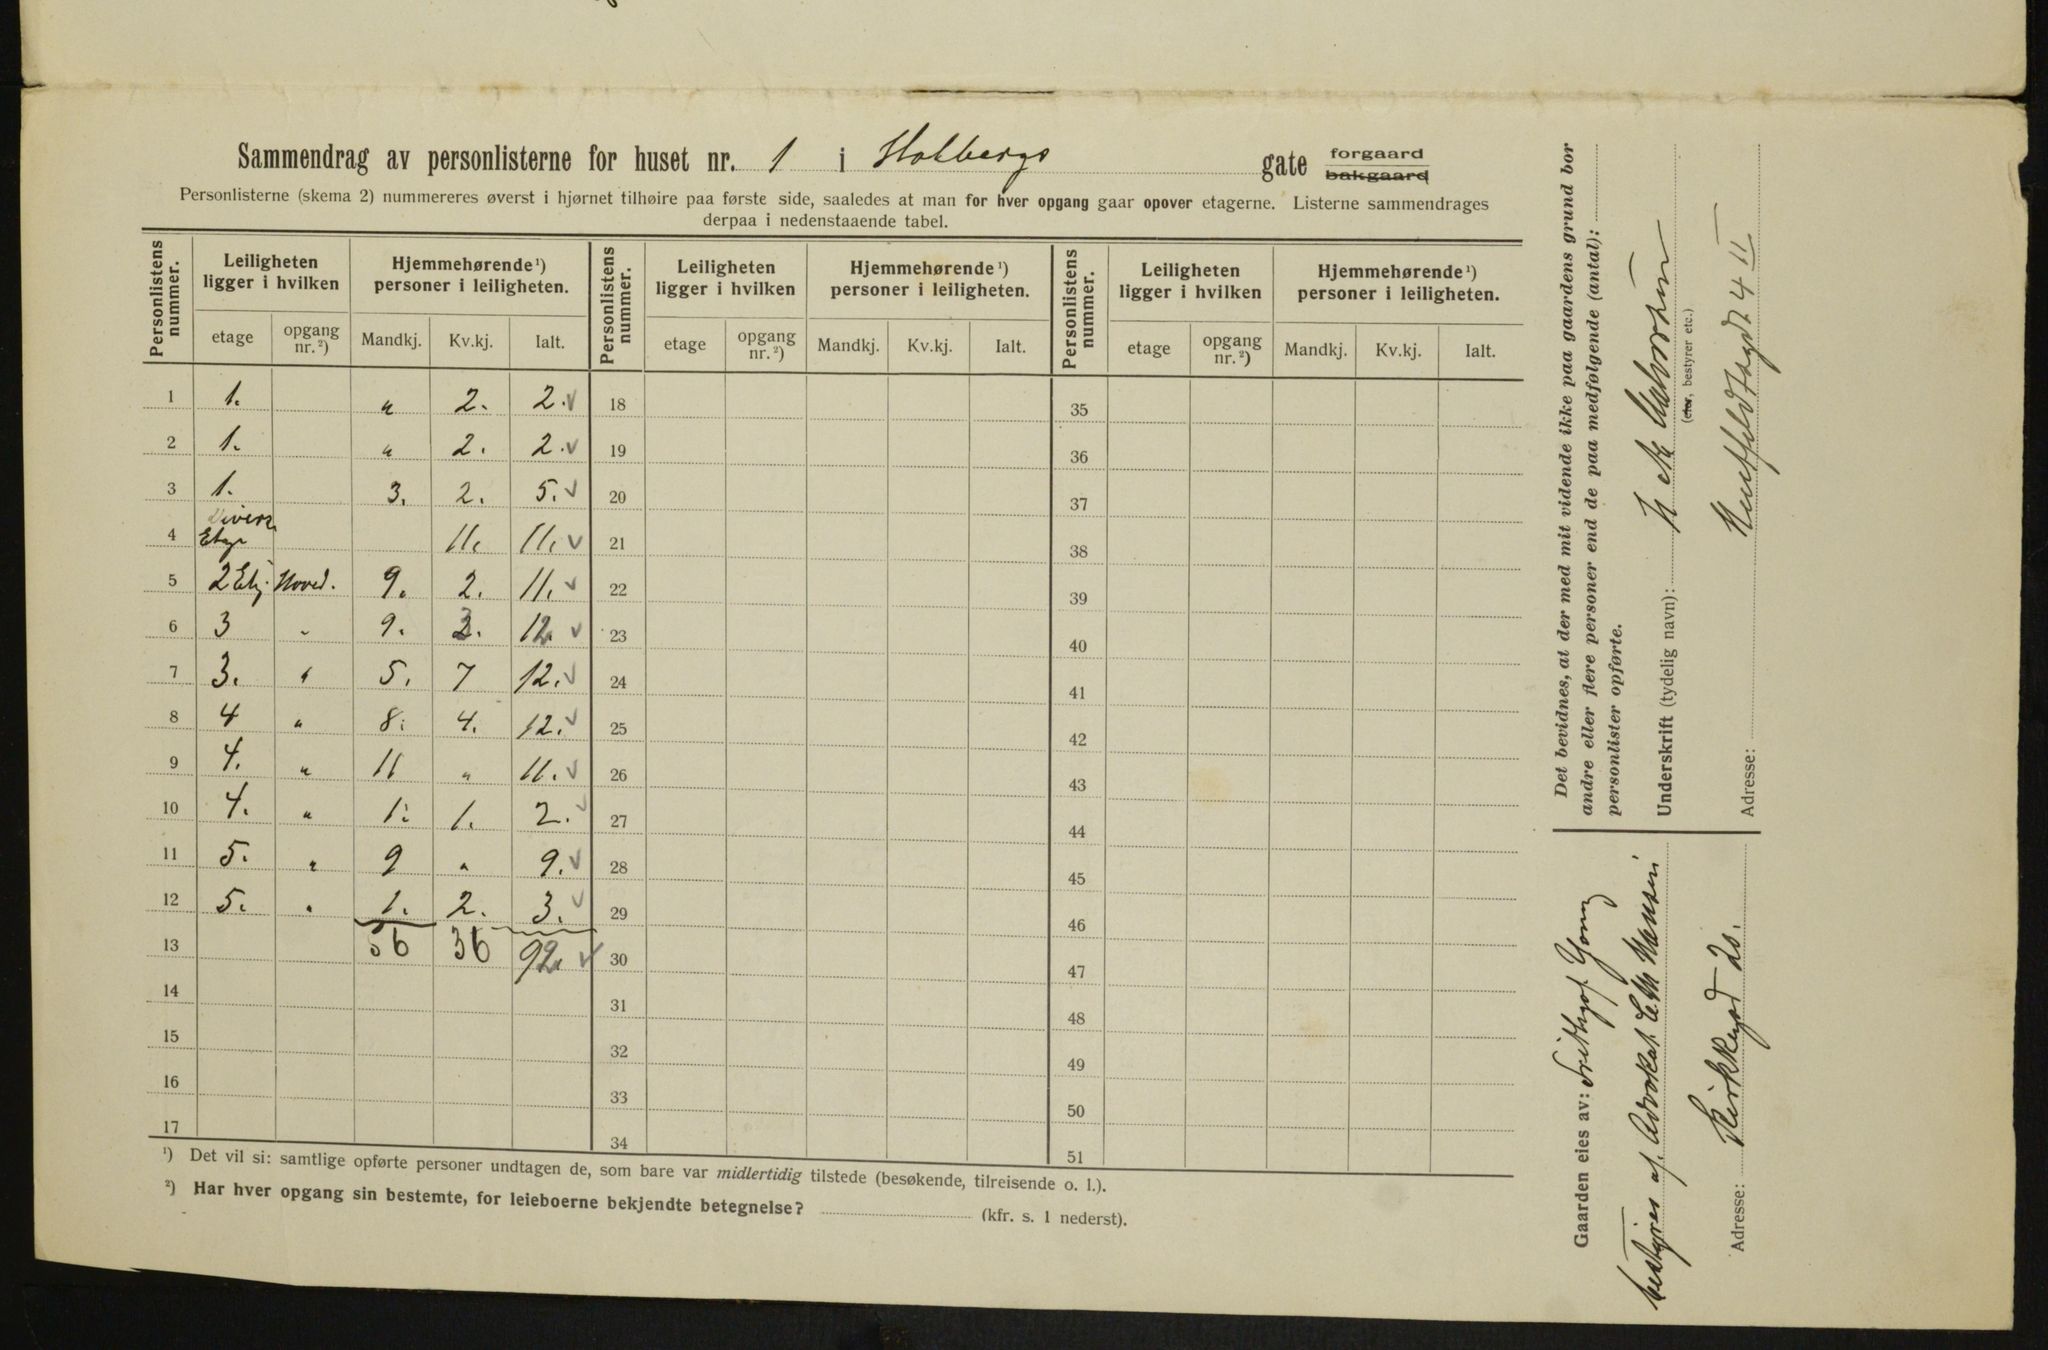 Sammendrag av personlisterne for huset nr. 1 i Holbergs gate forgaard bakgaard
Personlisterne (skema 2) nummereres øverst i hjørnet tilhøire paa første side, saaledes at man for hver opgang gaar opover etagerne. Listerne sammendrages
derpaa i nedenstaaende tabel.
Personlistens nummer. Leiligheten ligger i hvilken Hjemmehørende ¹) personer i leiligheten. Personlistens nummer. Leiligheten ligger i hvilken Hjemmehørende ¹) personer i leiligheten. Personlistens nummer. Leiligheten ligger i hvilken Hjemmehørende ¹) personer i leiligheten.
etage opgang nr. ²) Mandkj. Kv.kj. Ialt. etage opgang nr. ²) Mandkj. Kv.kj. Ialt. etage opgang nr. ²) Mandkj. Kv.kj. Ialt.
1 1. " 2. 2. 18 35
2 1. " 2. 2. 19 36
3 1. 3. 2. 5. 20 37
4 Etage 11. 11. 21 38
5 2 Etg. Hoved. 9. 2. 11. 22 39
6 3 " 9. 3. 12. 23 40
7 3. " 5. 7 12. 24 41
8 4 " 8. 4. 12. 25 42
9 4. " 11 " 11. 26 43
10 4. " 1. 1. 2. 27 44
11 5. " 9 " 9. 28 45
12 5. " 1. 2. 3. 29 46
13 56 36 92. 30 47
14 31 48
15 32 49
16 33 50
17 34 51
¹) Det vil si: samtlige opførte personer undtagen de, som bare var midlertidig tilstede (besøkende, tilreisende o. l.).
²) Har hver opgang sin bestemte, for leieboerne bekjendte betegnelse? (kfr. s. 1 nederst).
Det bevidnes, at der med mit vidende ikke paa gaardens grund bor
andre eller flere personer end de paa medfølgende (antal):
personlister opførte.
Underskrift (tydelig navn):
(eier, bestyrer etc.)
Adresse: Huitfeldtsgt 4 II
Gaarden eies av: Frithjof
bestyres af Advokat C M Hansen
Adresse: Kirkegd 20.